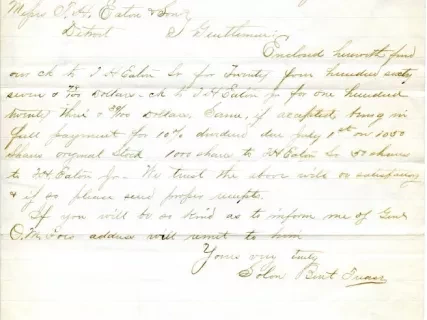 Messrs T. H. Eaton & Son
Detroit } Gentlemen:
Enclosed herewith find
our ck to T H Eaton So for Twenty four hundred sixty
seven & /100 Dollars - ck to T H Eaton Jr for one hundred
twenty three & 38/100 Dollars. Same, if accepted, being in
full payment for 10% dividend due July 1st on 1050
Shares orignal Stock 1000 share to TH Eaton So 50 shares
to T H Eaton Jr - We trust the above will be satisfactory
& if so please send proper receipts.
If you will be so kind as to inform me of Genl
O. M. Poes address will remit to him
Yours very truly
Solon Burt Treasr